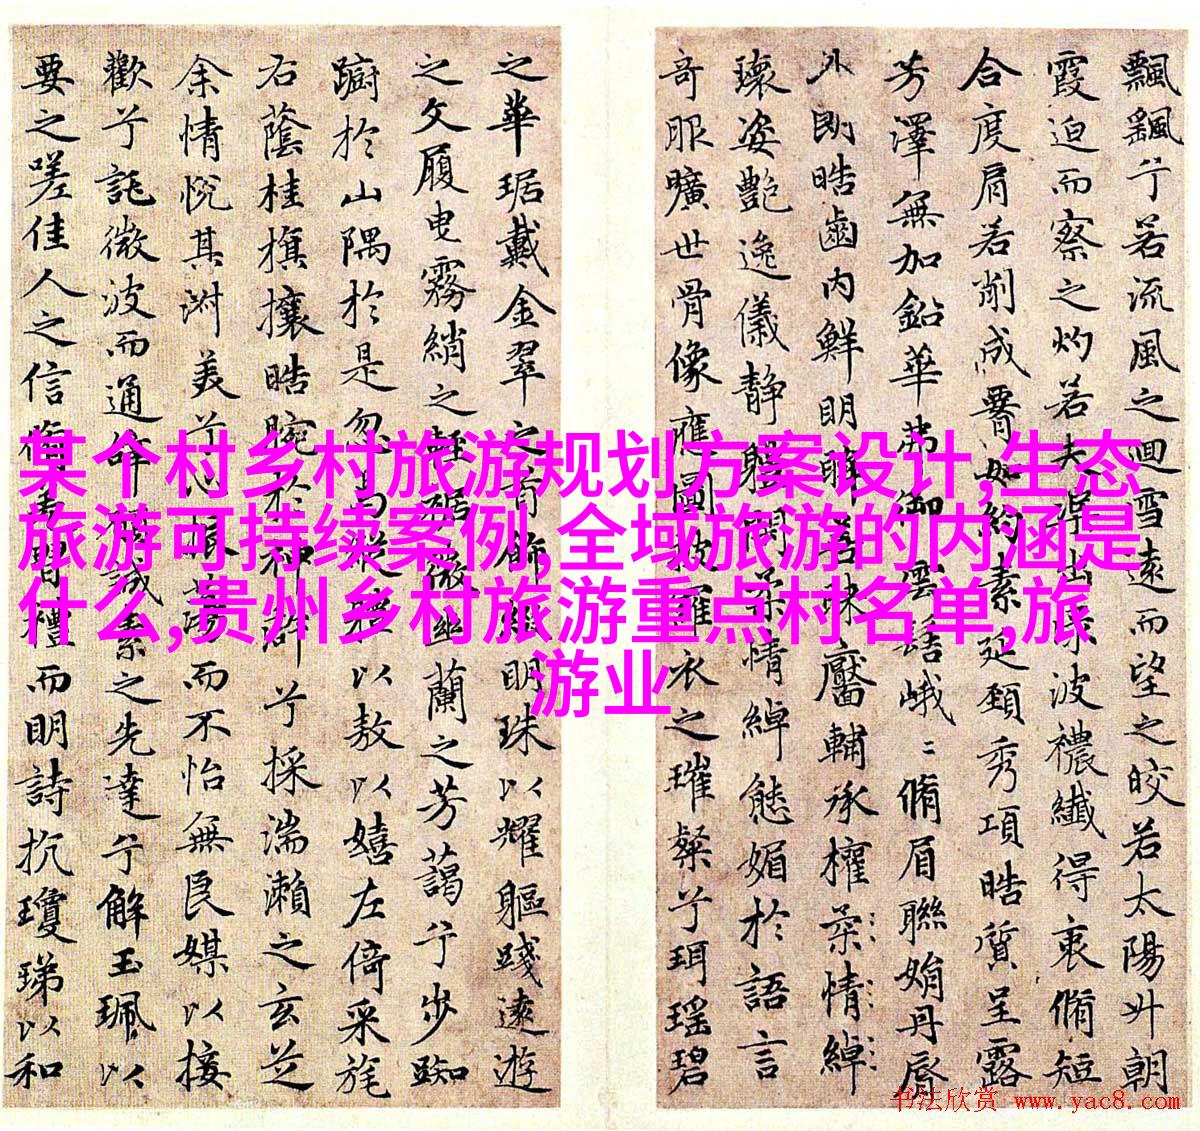 飄飖兮若流風之迴雪遠而望之皎若太陽升朝
霞迫而察之灼若夫蕖出淥波襛纖得衷脩短
合度肩若削成署如約素延頸秀項皓質呈露
芳澤無加鉛華弗御雲髻峨峨脩眉聯娟丹脣
外朗皓齒內鮮明眸善睞靨輔承權柔情綽
瓌姿艷逸儀静體閑柔情綽態媚於語言
奇服曠世骨像應圖披羅衣之璀粲兮珥瑶碧
之華琚戴金翠之首飾綴明珠以耀軀踐遠遊
之文履曳霧綃之輕裾微幽蘭之芳藹兮步踟
躕於山隅於是忽焉縱體以敖以嬉左倚采旄
右蔭桂旗攘皓腕於神滸兮採湍瀨之玄芝
余情悅其淑美兮心振蕩而不怡無良媒以接
歡兮託微波而通辭願誠素之先達兮解玉珮以
要之嗟佳人之信脩羌習禮而明詩抗瓊珶以和
某个村乡村旅游规划方案设计,生态
旅游可持续案例,全域旅游的内涵是
什么,贵州乡村旅游重点村名单,旅
游业
书法欣赏 www.yac8.com